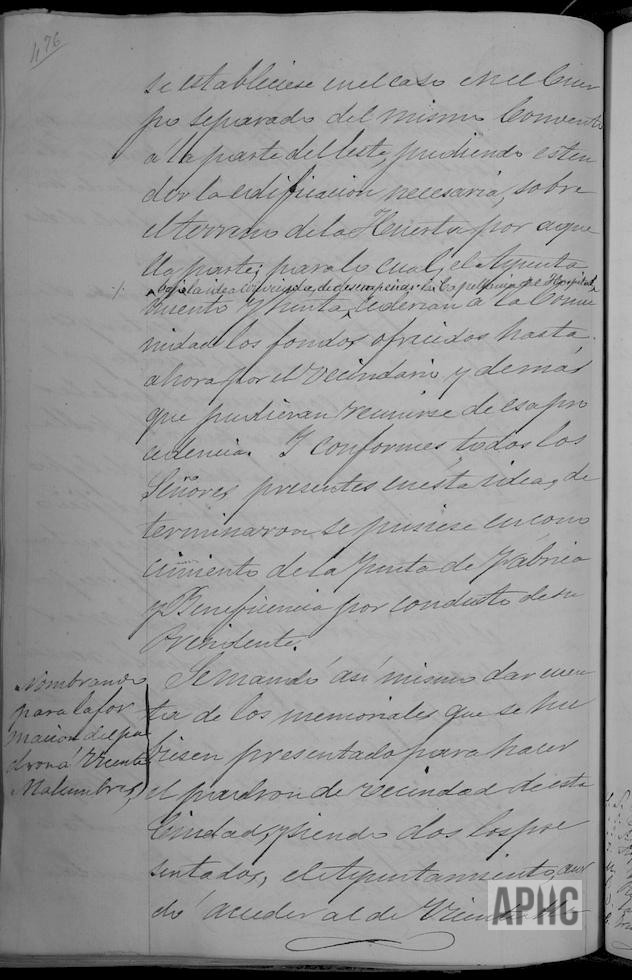 476
se estableciese en el caso en el Cuer
po separado del mismo Convento
a la parte del leste, pudiendo esten
der la edificacion necesaria, sobre
el terreno de la Huerta por aque
lla parte; para lo cual, el Ayunta
bajo la idea
miento y Junta, cederian a la Comu
nidad los fondos ofrecidos hasta
ahora por el Vecindario, y demás
que pudieran reunirse de esa pro
cedencia. Y conformes todos los
Señores presentes en esta idea, de
terminaron se pusiese en cono
cimiento de la Junta de Fabrica
y Beneficencia por conducto de su
Presidente.
Nombrando
para la for
macion del pa
dron á Vicente
Malumbres,
Se mandó así mismo dar cuen
ta de los memoriales que se hu
biesen presentado para hacer
el padron de vecindad de esta
Ciudad, y siendo dos los pre
sentados, el Ayuntamiento, acor
dó acceder al de Vicente Ma
APHC